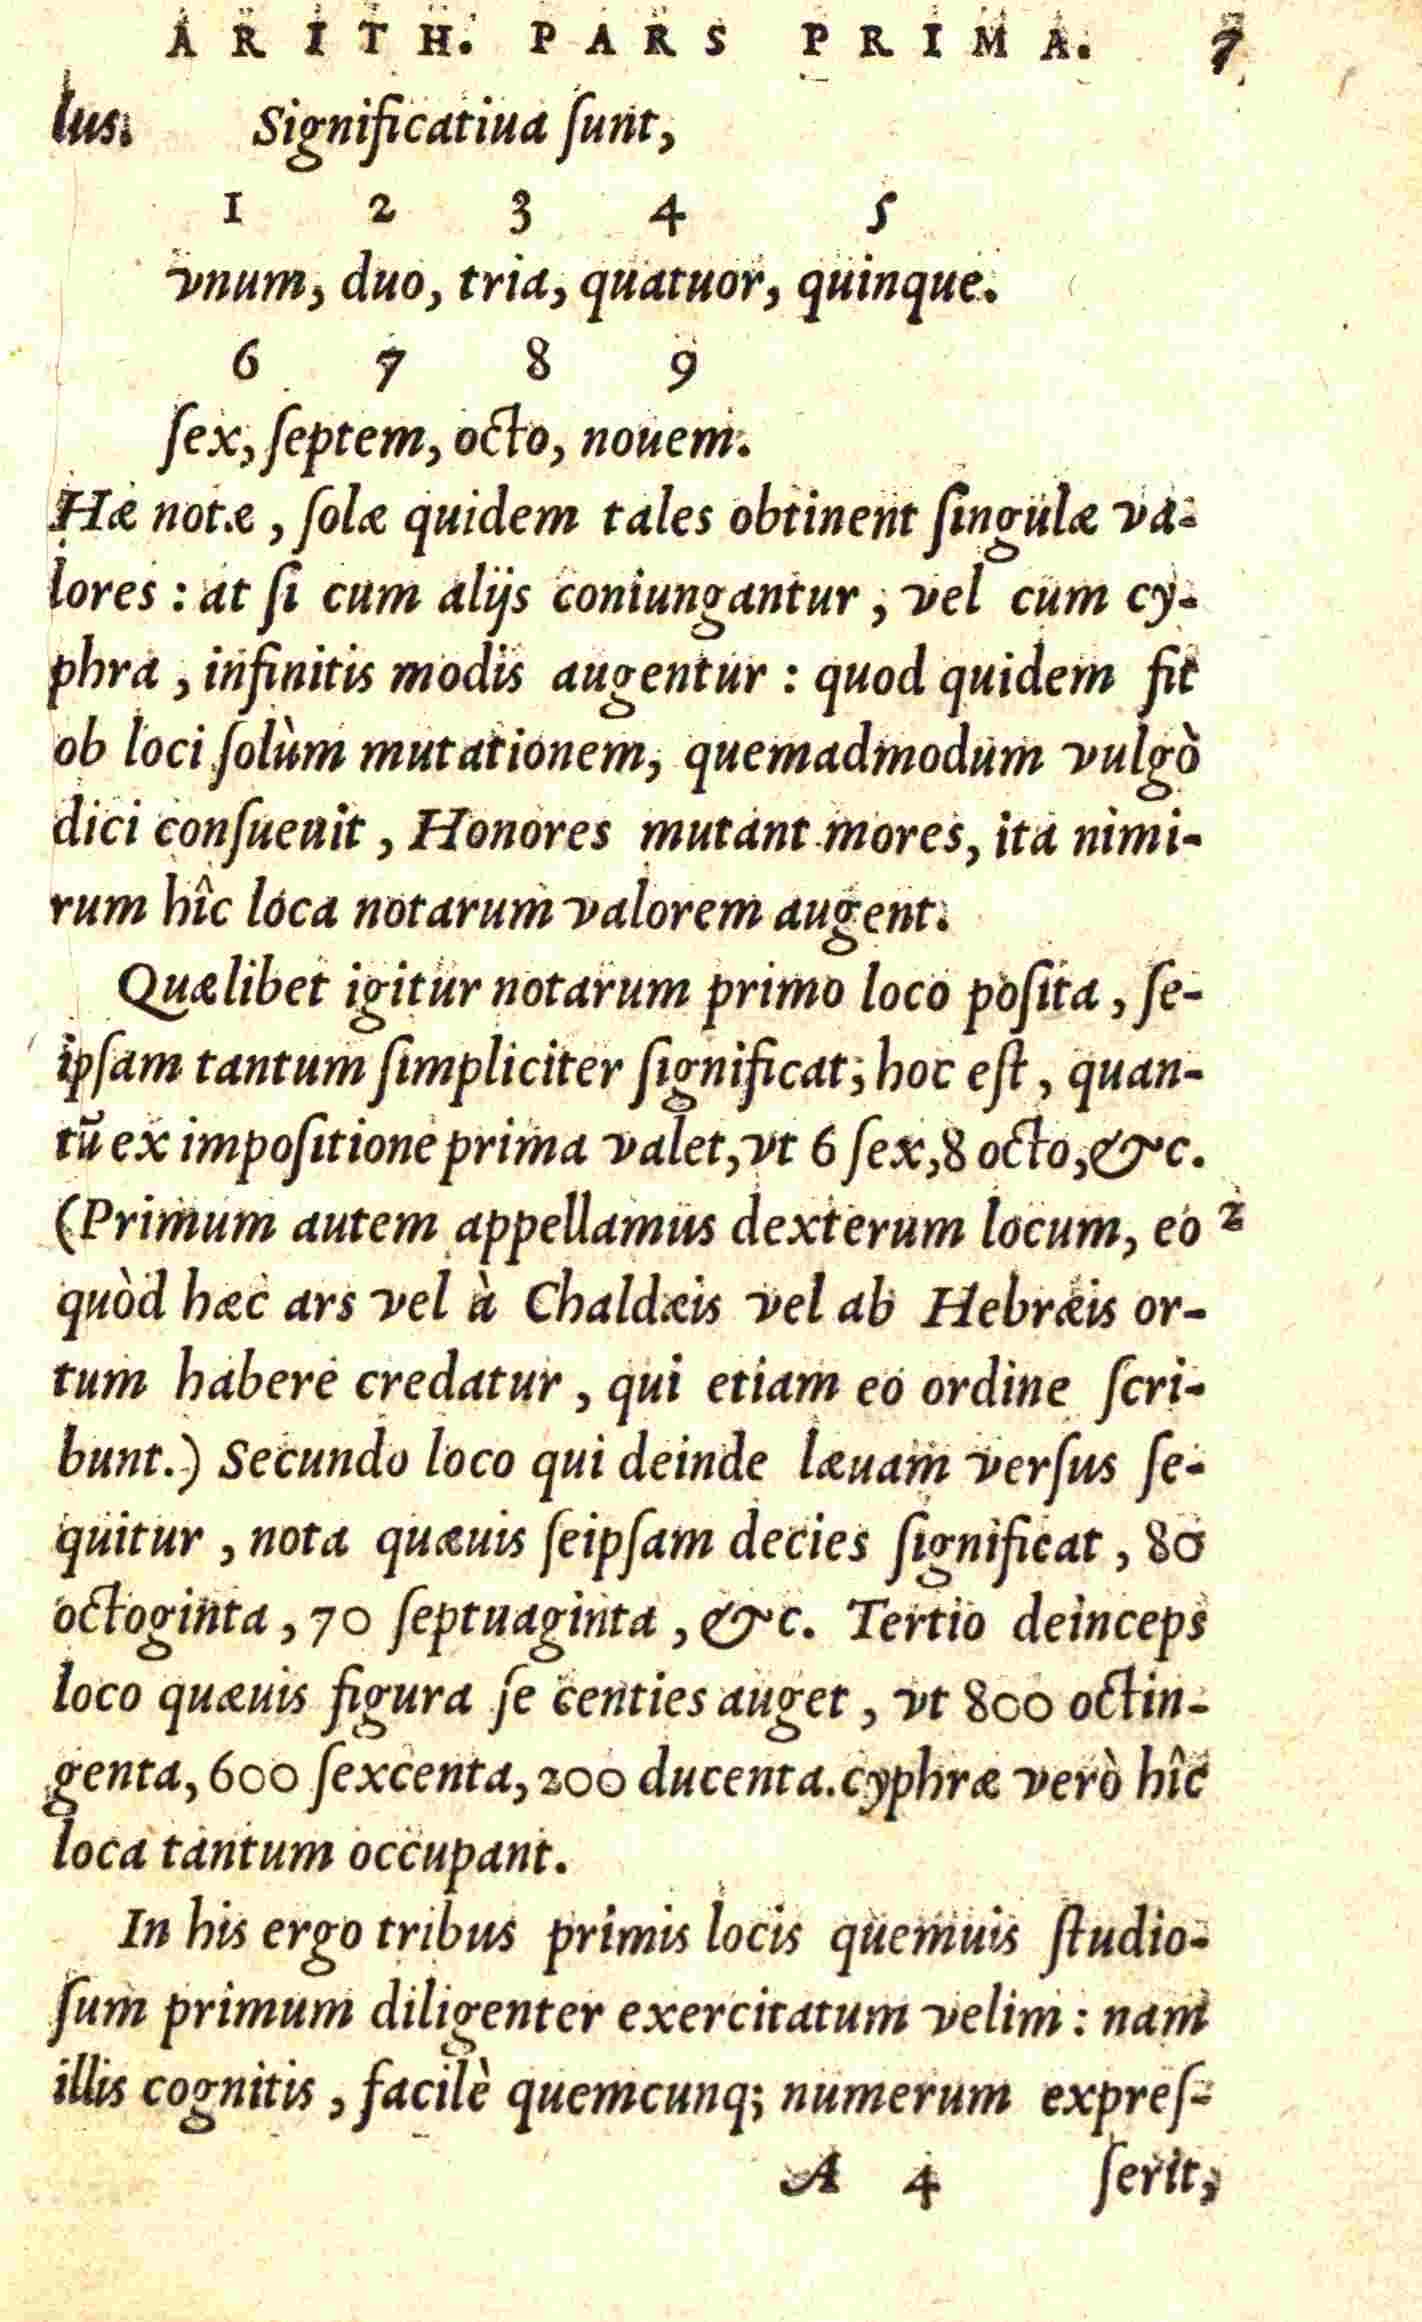 ARITH. PARS PRIMA. 7
lus. Significatiua ſunt,
1 2 3 4 5
vnum, duo, tria, quatuor, quinque.
6 7 8 9
ſex, ſeptem, octo, nouem.
Hæ notæ, ſolæ quidem tales obtinent ſingulæ va-
lores: at ſi cum alijs coniungantur, vel cum cy-
phra, infinitis modis augentur: quod quidem fit
ob loci ſolùm mutationem, quemadmodum vulgò
dici conſueuit, Honores mutant mores, ita nimi-
rum hîc loca notarum valorem augent.
Quælibet igitur notarum primo loco poſita, ſe-
ipſam tantum ſimpliciter ſignificat; hoc eſt, quan-
tũ ex impoſitione prima valet, vt 6 ſex, 8 octo, &c.
(Primum autem appellamus dexterum locum, eo 2
quòd hæc ars vel à Chaldæis vel ab Hebræis or-
tum habere credatur, qui etiam eo ordine ſcri-
bunt.) Secundo loco qui deinde læuam verſus ſe-
quitur, nota quæuis ſeipſam decies ſignificat, 80
octoginta, 70 ſeptuaginta, &c. Tertio deinceps
loco quæuis figura ſe centies auget, vt 800 octin-
genta, 600 ſexcenta, 200 ducenta. cyphræ verò hîc
loca tantum occupant.
In his ergo tribus primis locis quemuis ſtudio-
ſum primum diligenter exercitatum velim: nam
illis cognitis, facilè quemcunq; numerum expreſ-
A 4 ſerit,